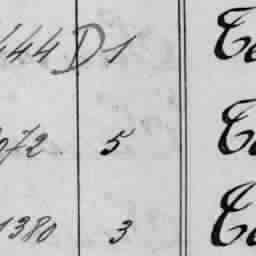 444 D 1 Te
072 5 Te
1380 3 Te